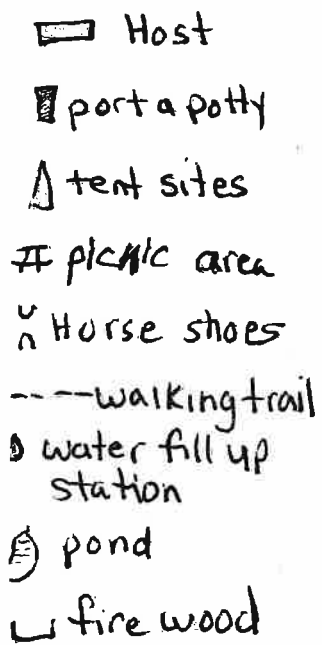 Host
port a potty
tent sites
picnic area
Horse shoes
walking trail
water fill up
station
pond
fire wood